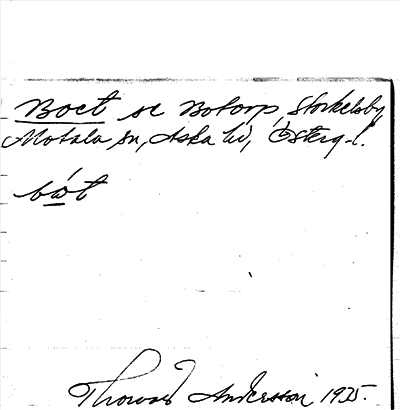 Boet se Botorp, Storkelsby,
Motala sn, Aska hd, Österg-l.
bώ̲t
Thorwald Andersson 1935.